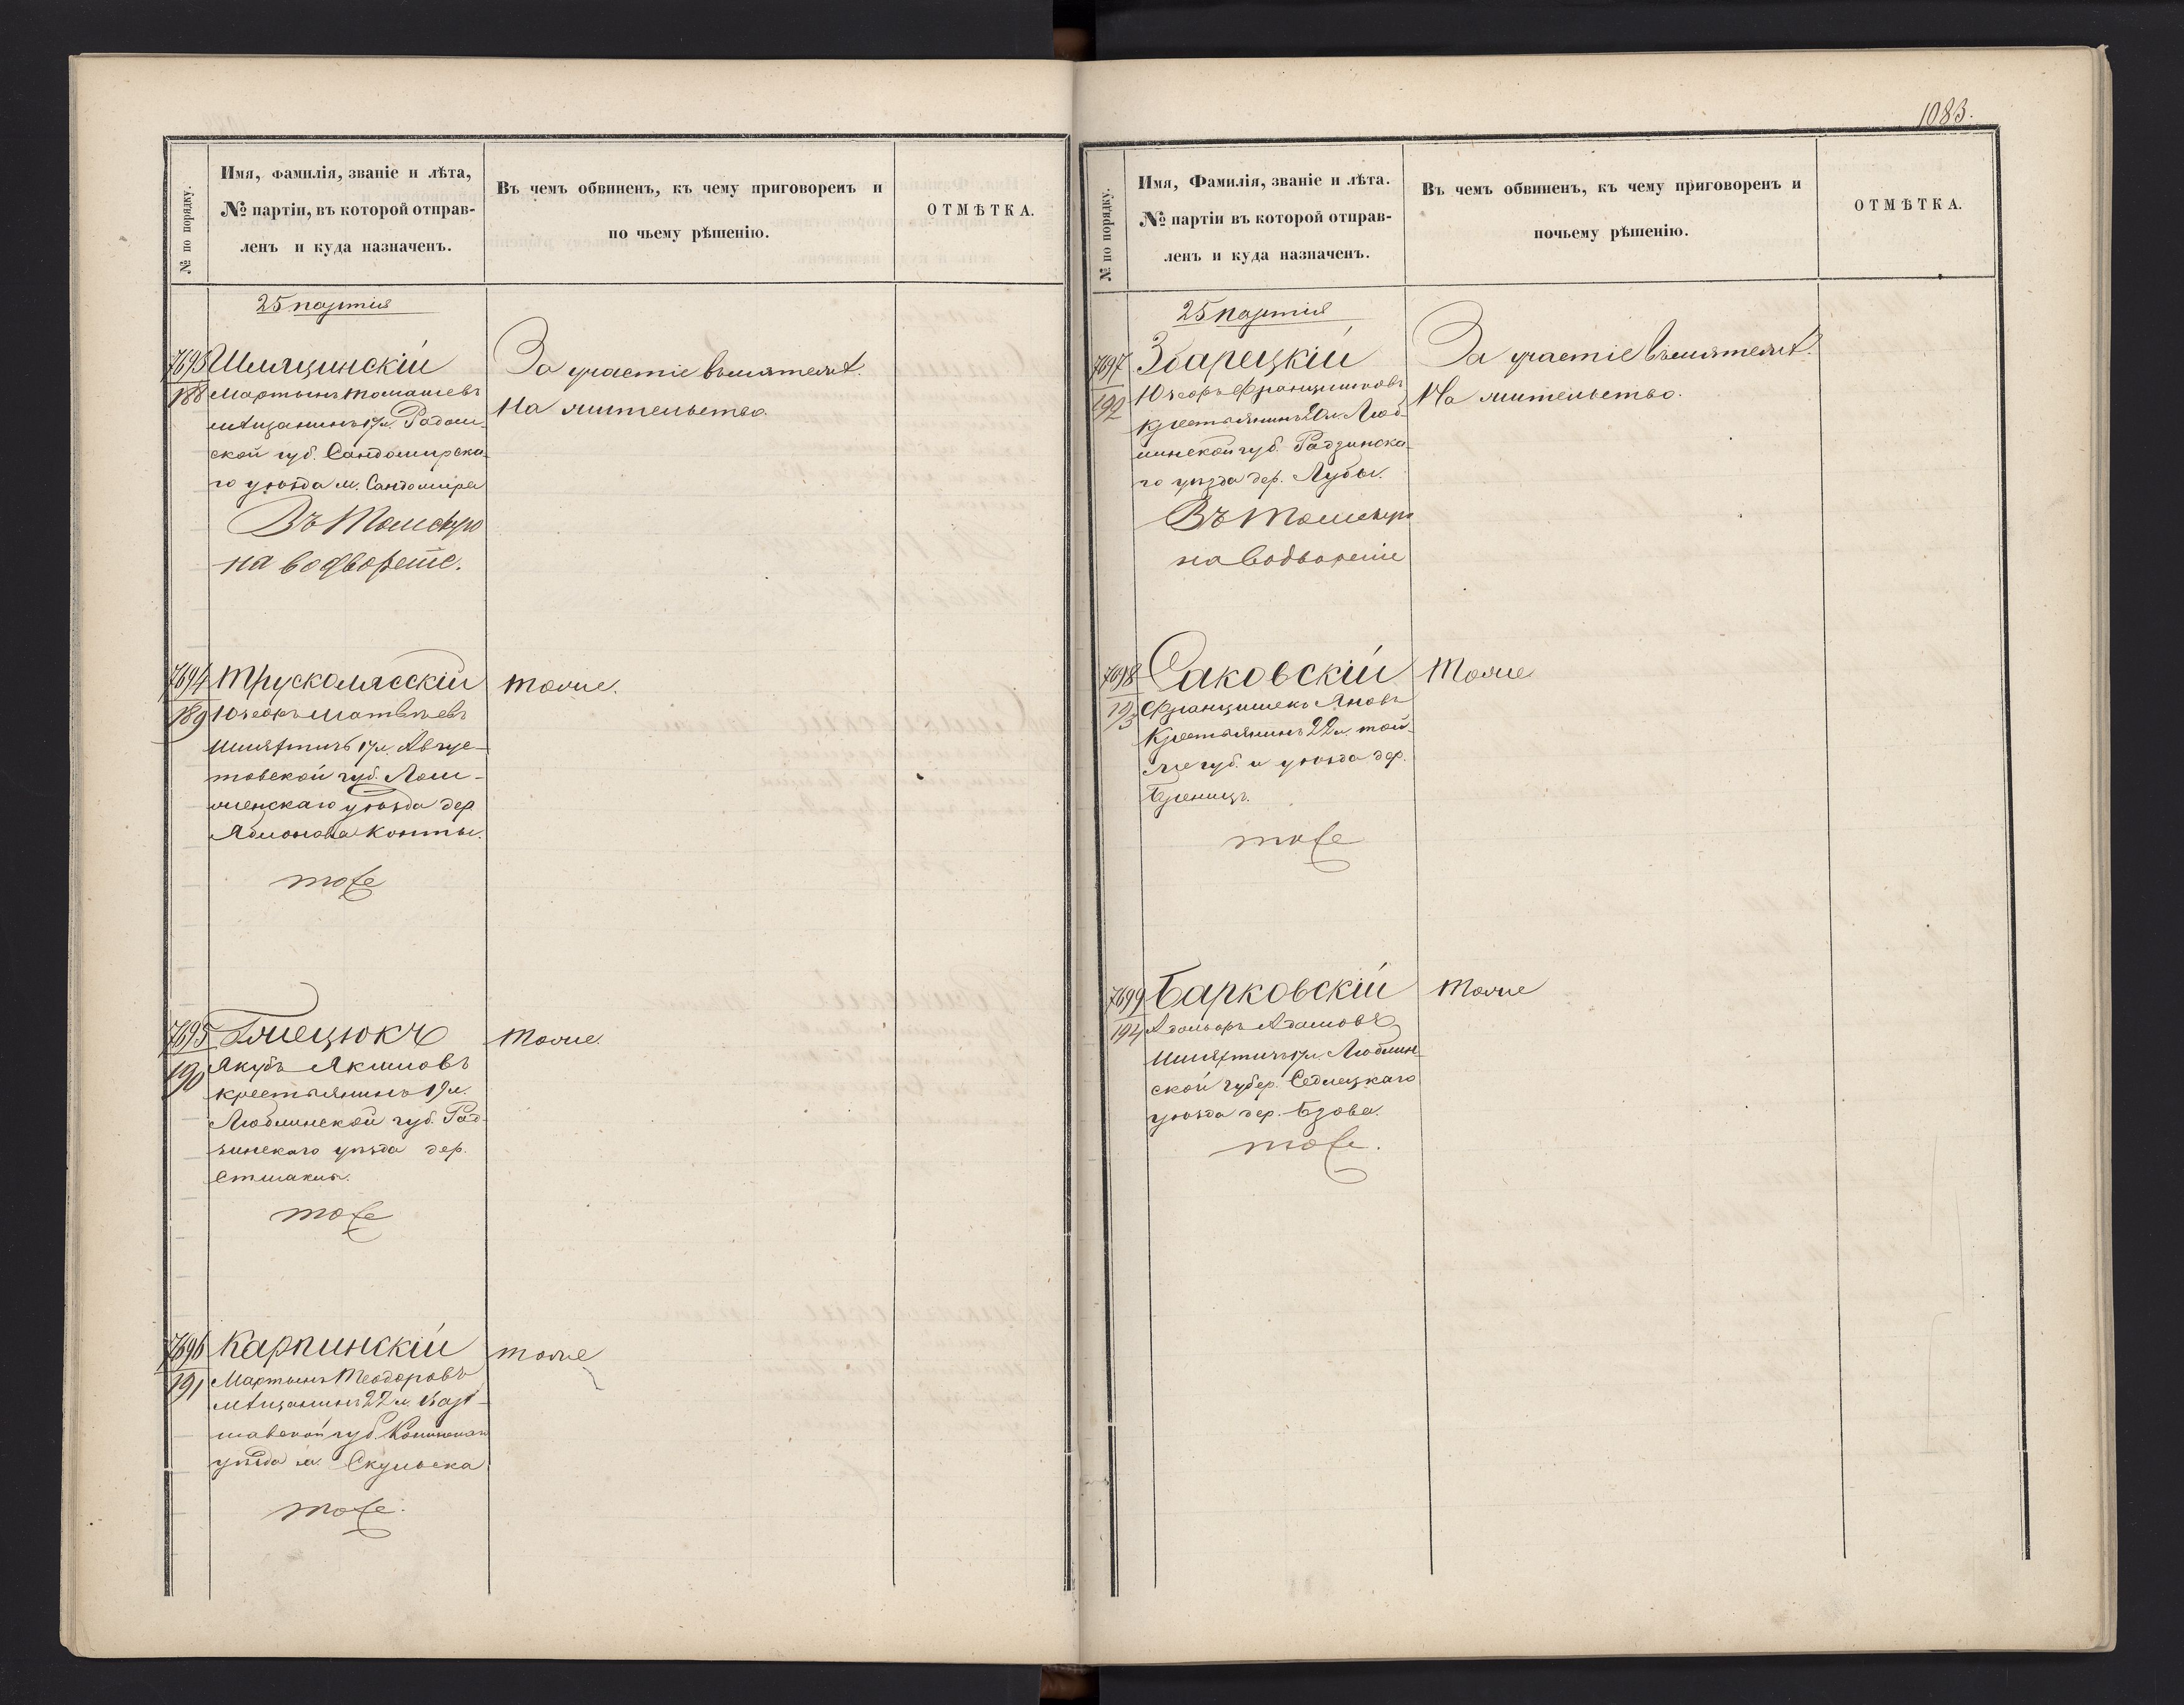 № по порядку.
Имя, Фамилія, званіе и лѣта,
№ партіи, въ которой отправ-
ленъ и куда назначенъ.
Въ чемъ обвиненъ, къ чему приговоренъ и
по чьему рѣшенію.
ОТМѢТКА.
25 партія
7693
188
Шмяцинскій
Мартынъ Томашевъ
мѣщанинъ 17 л. Радом-
ской губ. Сандомирска-
го уѣзда м. Сандомира
Въ Томскую
на водвореніе.
За участіе въ мятежѣ.
На жительство.
7694
189
Трусколясскій
Юзефъ Матвѣевъ
Шляхтичъ 17 л. Авгус-
товской губ. Лом-
женскаго уѣзда дер.
Яблонова Конты.
тоже
Тоже.
7695
190
Якубъ Якимовъ
крестьянинъ 19 л.
Люблинской губ. Рад-
зинскаго уѣзда дер.
тоже
Тоже.
7696
191
Карпинскій
Мартынъ Теодоровъ
мѣщанинъ 22 л. Вар-
шавской губ. Конинскаго
уѣзда м. Скульска
тоже.
тоже
1083.
№ по порядку.
Имя, Фамилія, званіе и лѣта.
№ партіи въ которой отправ-
ленъ и куда назначенъ.
Въ чемъ обвиненъ, къ чему приговоренъ и
почьему рѣшенію.
ОТМѢТКА.
25 партія
7697
192
Збарецкій
Юзефъ Францишковъ
крестьянинъ 20 л. Люб-
линской губ. Радзинска-
го уѣзда дер. Лубы.
Въ Томскую
на водвореніе
За участіе въ мятежѣ.
На жительство.
7698
193
Саковскій
Францишекъ Яновъ
Крестьянинъ 22 л. той-
же губ. и уѣзда дер.
тоже
Тоже
7699
194
Барковскій
Адольфъ Адамовъ
Шляхтичъ 17 л. Люблин-
ской губер. Седлецкаго
уѣзда дер. Бзова.
тоже.
Тоже